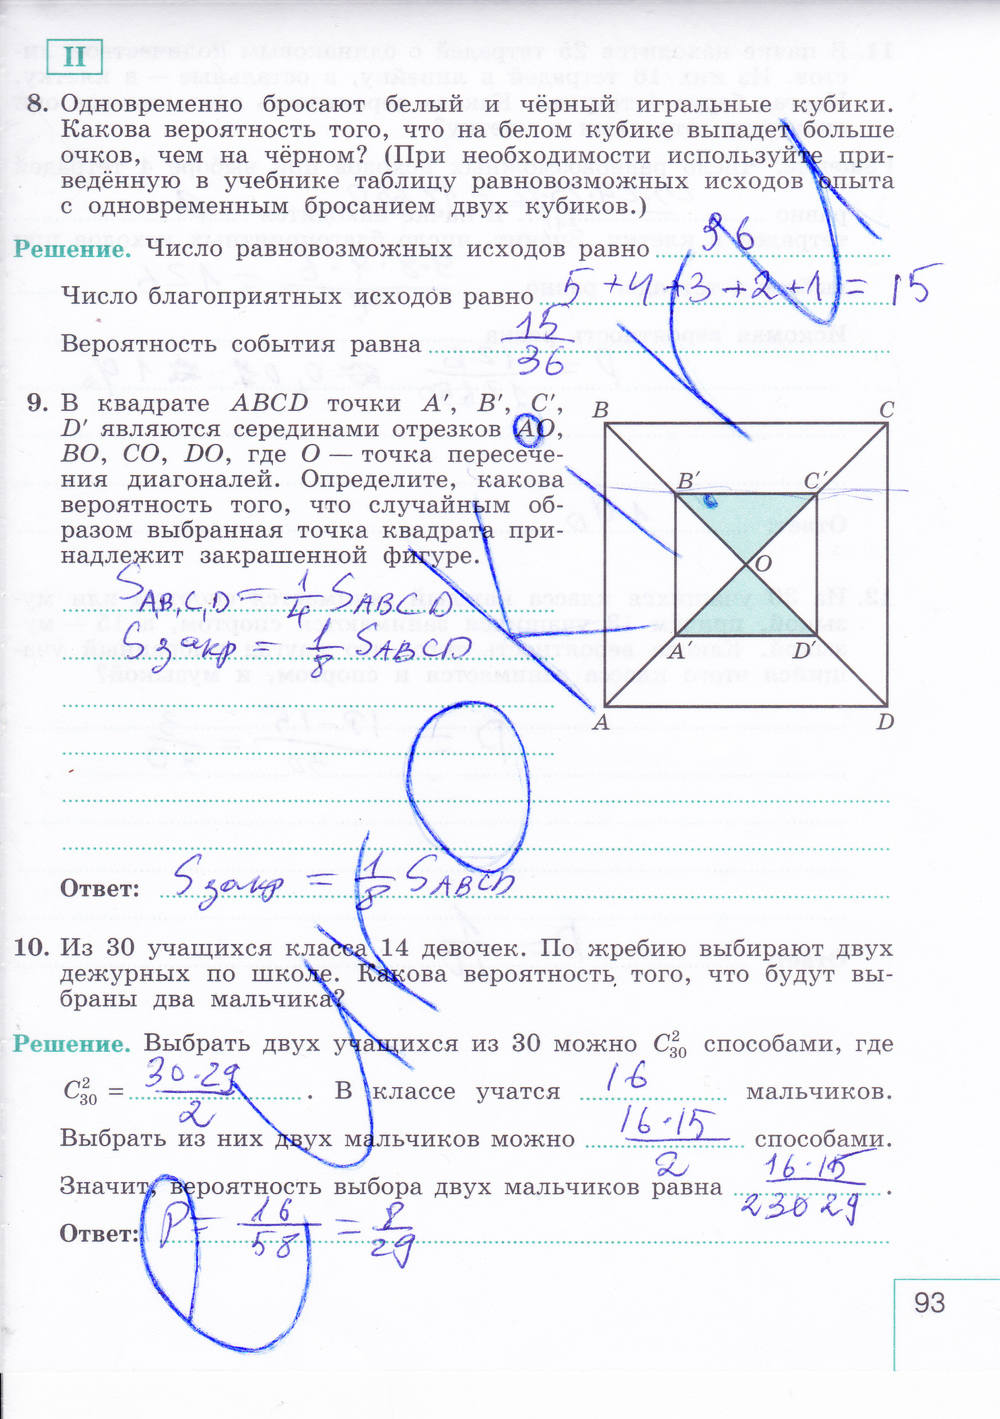 II
8. Одновременно бросают белый и чёрный игральные кубики.
Какова вероятность того, что на белом кубике выпадет больше
очков, чем на чёрном? (При необходимости используйте при-
ведённую в учебнике таблицу равновозможных исходов опыта
с одновременным бросанием двух кубиков.)
Решение. Число равновозможных исходов равно 36
Число благоприятных исходов равно 5+4+3+2+1 = 15
Вероятность события равна 15/36
9. В квадрате ABCD точки A′, B′, C′,
D′ являются серединами отрезков AO,
BO, CO, DO, где O — точка пересече-
ния диагоналей. Определите, какова
вероятность того, что случайным об-
разом выбранная точка квадрата при-
надлежит закрашенной фигуре.
B C
B′ C′
O
A′ D′
A D
S A₁B₁C₁D = 1/4 S ABCD
S закр = 1/8 S ABCD
Ответ: S закр = 1/8 S ABCD
10. Из 30 учащихся класса 14 девочек. По жребию выбирают двух
дежурных по школе. Какова вероятность того, что будут вы-
браны два мальчика?
Решение. Выбрать двух учащихся из 30 можно C²₃₀ способами, где
C²₃₀ = 30·29/2 . В классе учатся 16 мальчиков.
Выбрать из них двух мальчиков можно 16·15/2 способами.
Значит, вероятность выбора двух мальчиков равна 16·15/23029 .
Ответ: P = 16/58 = 8/29
93